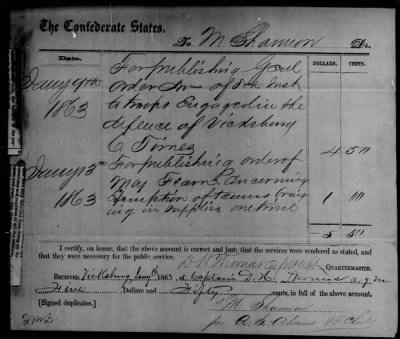 The Confederate States,
To M Shannon Dr.
Date. DOLLARS. CENTS.
Jany 9th For publishing Genl
1863 order No of 8th Inst
to troops Engaged in the
defence of Vicksburg
6 Times 4 50
Jany 13th For publishing order of
1863 Maj Fearn Concerning
of teams
ing in supplies one time 1 00
5 50
I certify, on honor, that the above account is correct and just; that the services were rendered as stated, and
that they were necessary for the public service.
QUARTERMASTER.
Received Vicksburg 1863, of Captain
Five Dollars and Fifty cents, in full of the above account,
[Signed duplicates.] M Shannon